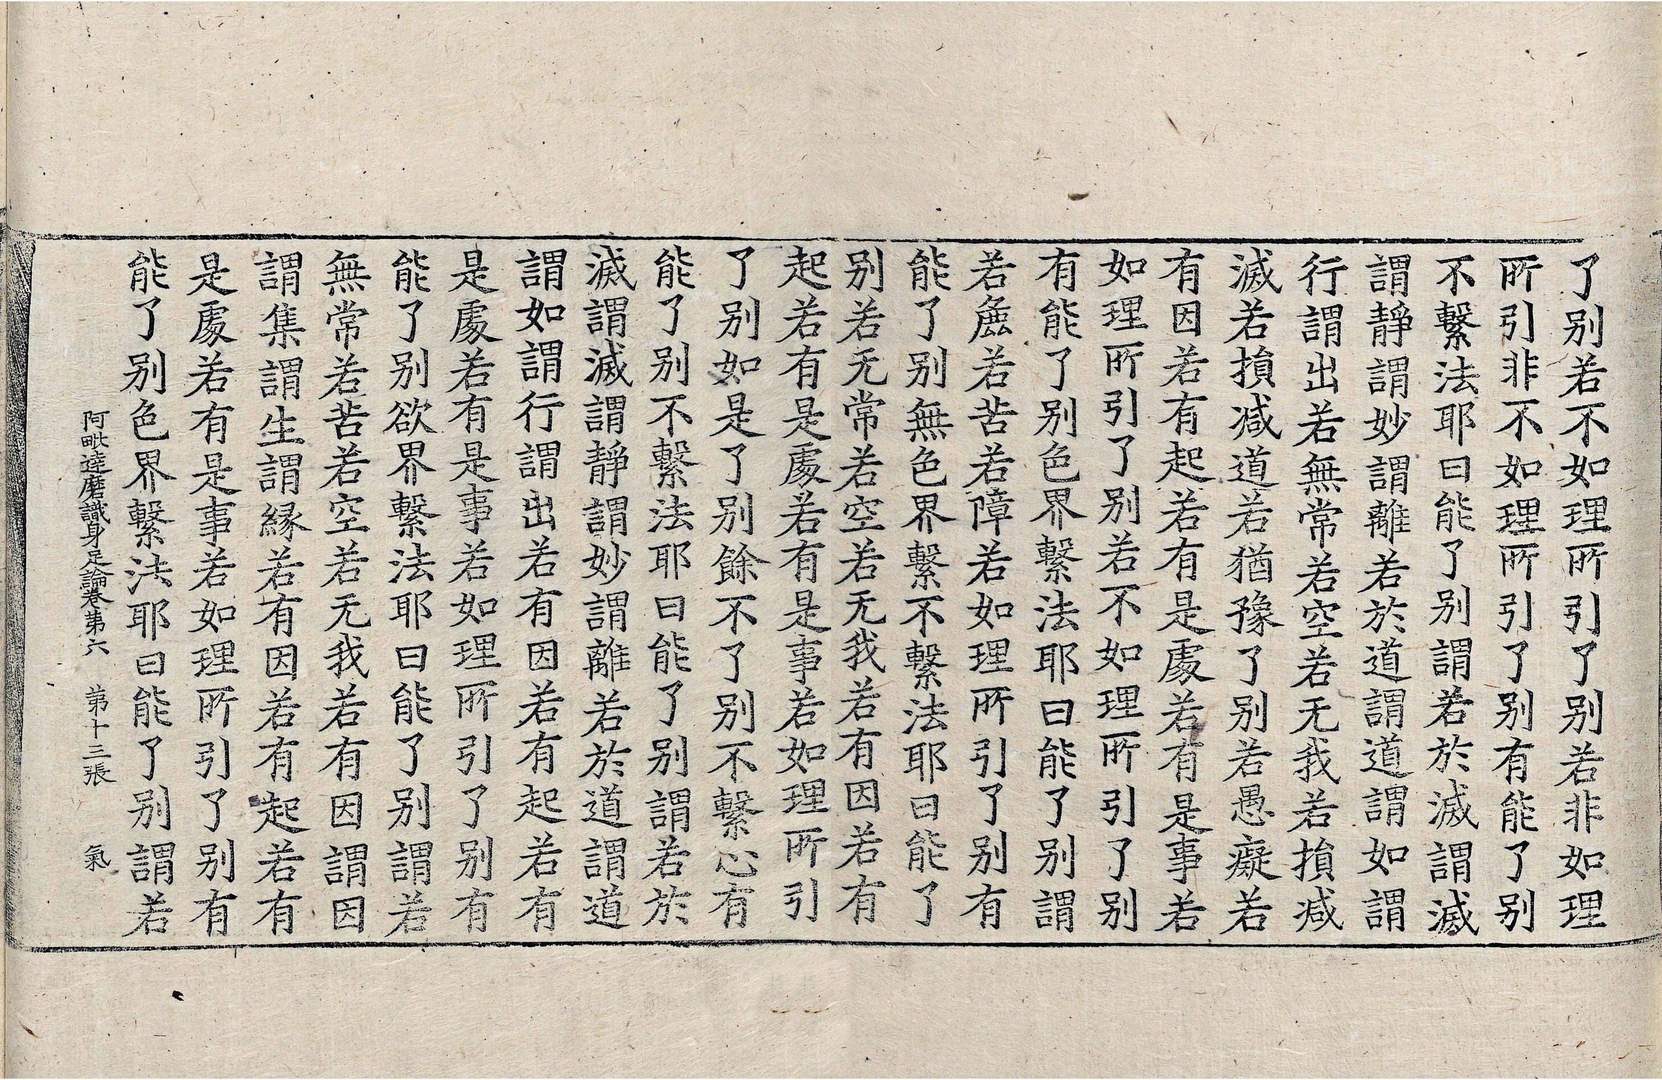 了别若不如理所引了别若非如理
所引非不如理所引了别有能了别
不繫法耶曰能了别謂若於滅謂滅
謂靜謂妙謂離若於道謂道謂如謂
行謂出若無常若空若无我若損減
滅若損减道若猶豫了别若愚癡若
有因若有起若有是處若有是事若
如理所引了别若不如理所引了别
有能了别色界繫法耶曰能了别謂
若麁若苦若障若如理所引了别有
能了别無色界繫不繫法耶曰能了
别若无常若空若无我若有因若有
起若有是處若有是事若如理所引
了别如是了别餘不了别不繫心有
能了别不繫法耶曰能了别謂若於
滅謂滅謂靜謂妙謂離若於道謂道
謂如謂行謂出若有因若有起若有
是處若有是事若如理所引了别有
能了别欲界繫法耶曰能了别謂若
無常若苦若空若无我若有因謂因
謂集謂生謂緣若有因若有起若有
是處若有是事若如理所引了别有
能了别色界繫法耶曰能了别謂若
阿毗達磨識身足論卷第六　第十三張　氣